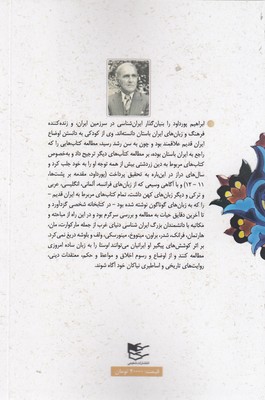 ابراهیم پورداود را بنیان‌گذار ایران‌شناسی در سرزمین ایران، و زنده‌کننده
فرهنگ و زبان‌های ایران باستان دانسته‌اند. وی از کودکی به دانستن اوضاع
ایران قدیم علاقمند بود و چون به سن رشد رسید، مطالعه کتاب‌هایی را که
راجع به ایران باستان بوده، بر مطالعه کتاب‌های دیگر ترجیح داد و به‌خصوص
کتاب‌های مربوط به دین زردشتی بیش از همه توجه او را به خود جلب کرد و
سال‌های دراز در این‌باره به تحقیق پرداخت (پورداود، مقدمه بر یشت‌ها،
۱۱ - ۱۲) و با آگاهی وسیعی که از زبان‌های فرانسه، آلمانی، انگلیسی، عربی
و ترکی و دیگر زبان‌های کهن داشت، تمام کتاب‌های مربوط به ایران قدیم -
را که به زبان‌های گوناگون نوشته شده بود – در کتابخانه شخصی گردآورد و
تا آخرین دقایق حیات به مطالعه و بررسی سرگرم بود و در این راه از مباحثه و
مکاتبه با دانشمندان بزرگ ایران شناسی دنیای غرب از جمله مارکوارت، مان،
هارتمان، فرانک، شدر، برلون، میتووخ، مینورسکی، ولف و یاوشه دریغ نمی‌کرد.
بر اثر کوشش‌های پیگیر او ایرانیان می‌توانند اوستا را به زبان ساده امروزی
مطالعه کنند و از اوضاع و رسوم اخلاق و مواعظ و حکم، معتقدات دینی،
روایت‌های تاریخی و اساطیری نیاکان خود آگاه شوند.